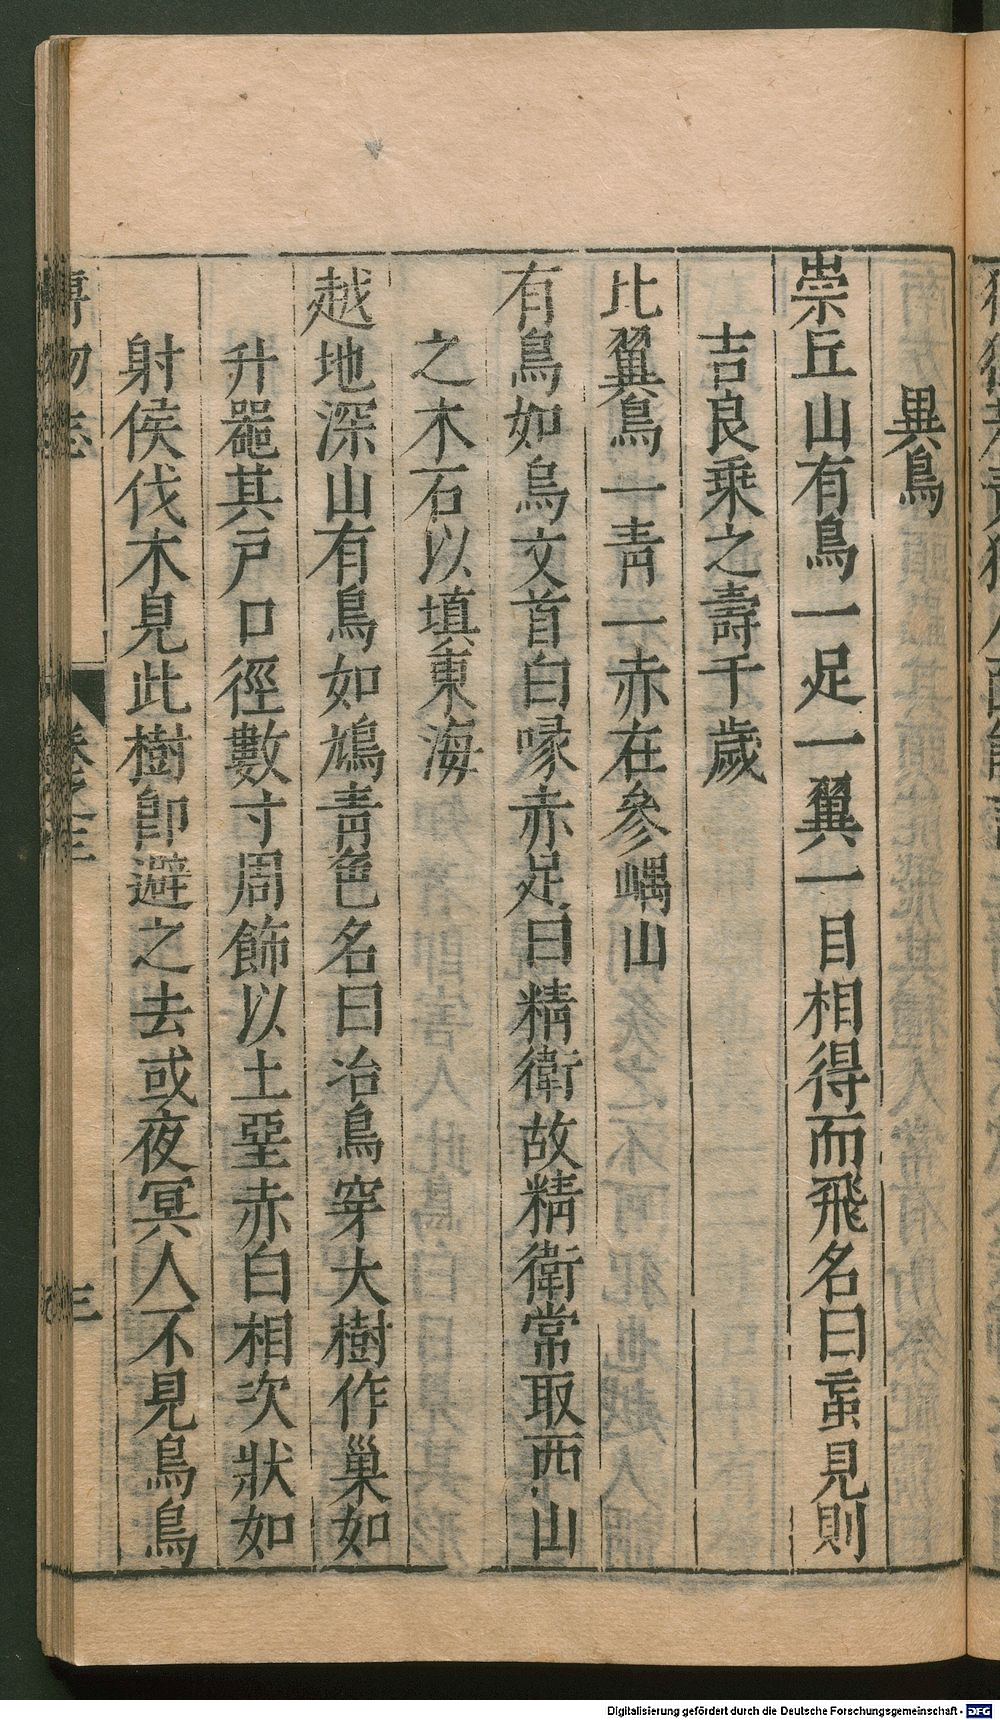 異鳥
崇丘山有鳥一足一翼一目相得而飛名曰䖟見則
吉良乘之壽千歲
比翼鳥一青一赤在參嵎山
有鳥如烏文首白喙赤足曰精衛故精衛常取西山
之木石以填東海
越地深山有鳥如鳩青色名曰冶鳥穿大樹作巢如
升噐其戶口徑數寸周飾以土堊赤白相次狀如
射侯伐木見此樹卽避之去或夜冥人不見鳥鳥
博物志
卷之三
三
Digitalisierung gefördert durch die Deutsche Forschungsgemeinschaft - DFG